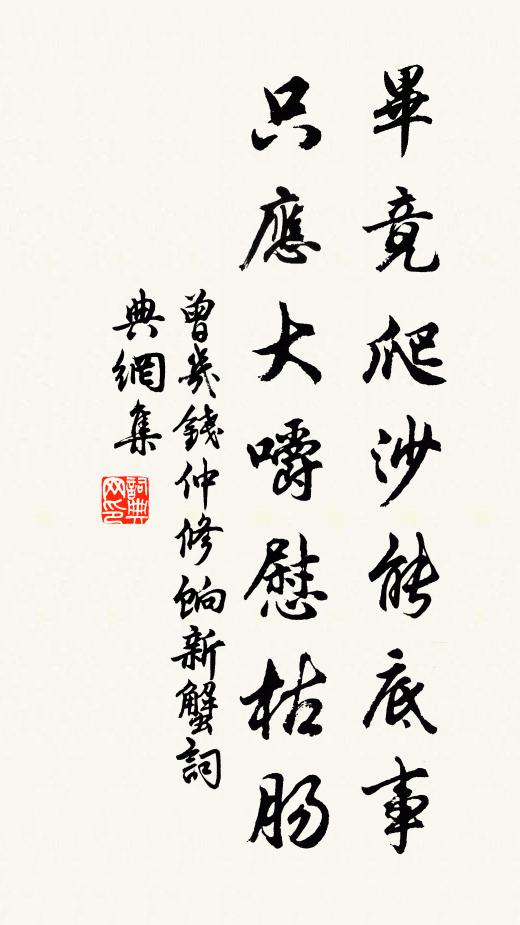 畢竟爬沙能底事
只應大嚼慰枯腸
曾幾錢仲修餉新蟹詞
典網集
詞典
网印